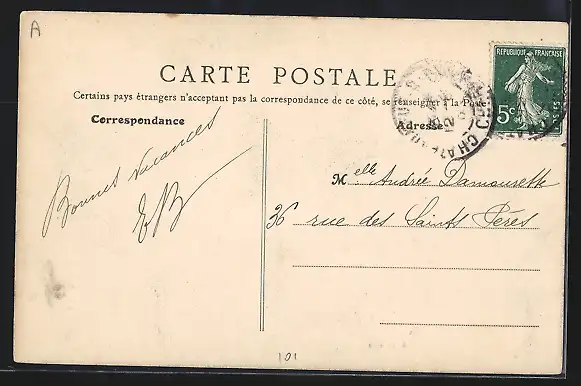 A
RÉPUBLIQUE FRANÇAISE
POSTES
5c
CARTE POSTALE
Certains pays étrangers n'acceptant pas la correspondance de ce côté, se renseigner à la Poste
Correspondance
Adresse
CHATEAU
Bonnes vacances
EB
Melle Andrée Damourette
36 rue des Saints Peres
101